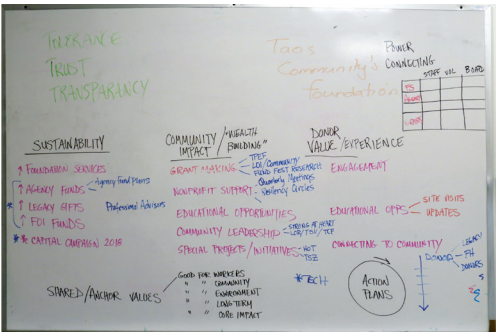 TOLERANCE
TRUST
TRANSPARANCY
Taos
Community's
Foundation
POWER
CONNECTING
STAFF VOL BOARD
SUSTAINABILITY
↑ FOUNDATION SERVICES
↑ AGENCY FUNDS
Agency Fund Plans
↑ LEGACY GIFTS
Professional Advisors
* ↑ FOI FUNDS
* CAPITAL CAMPAIGN 2018
COMMUNITY IMPACT / "WEALTH BUILDING"
GRANT MAKING
TPEF
LOI/COMMUNITY
FUND FEST RESEARCH
NONPROFIT SUPPORT
Quarterly Meetings
Resiliency Circles
EDUCATIONAL OPPORTUNITIES
COMMUNITY LEADERSHIP
STRONG AT HEART
SPECIAL PROJECTS/INITIATIVES
HOT
TSZ
*TECH
DONOR
VALUE/EXPERIENCE
ENGAGEMENT
EDUCATIONAL OPPS
SITE VISITS
UPDATES
CONNECTING TO COMMUNITY
DONOR
LEGACY
FH
DONORS
ACTION
PLANS
SHARED/ANCHOR VALUES
GOOD FOR WORKERS
" " COMMUNITY
" " ENVIRONMENT
" " LONG TERM
" " CORE IMPACT